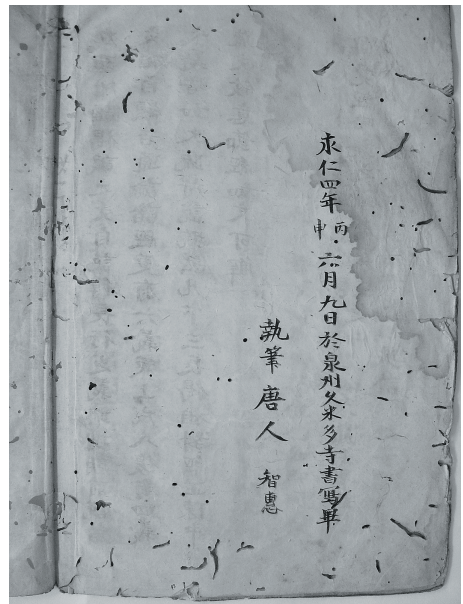 永仁四年丙申六月九日於泉州久米多寺書寫畢
執筆唐人 智惠